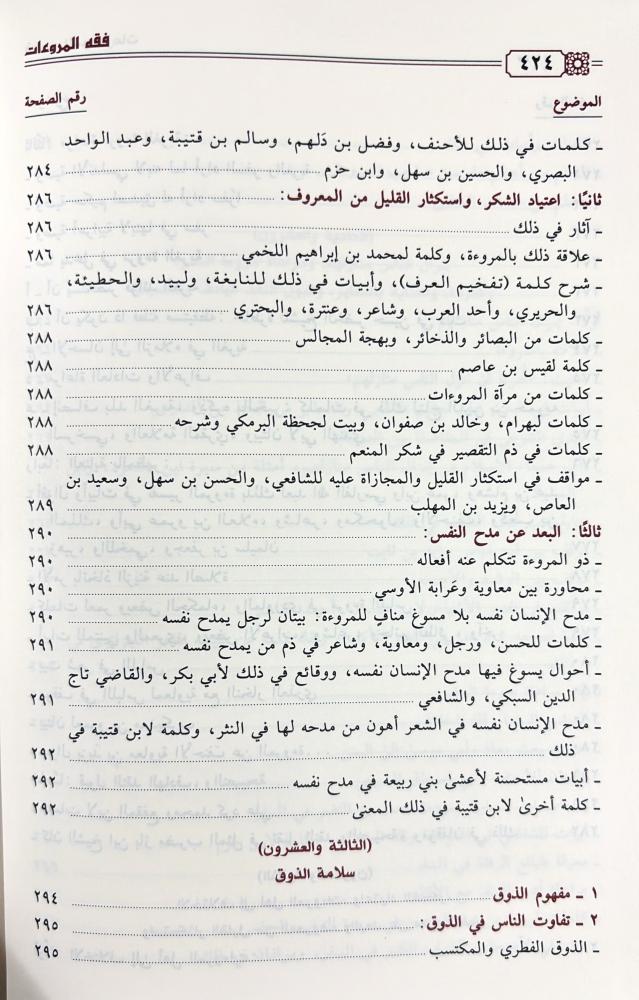 فقه المروءات
٤٢٤
الموضوع رقم الصفحة
ـ كلمات في ذلك للأحنف، وفضل بن دَلهم، وسالم بن قتيبة، وعبد الواحد
البصري، والحسين بن سهل، وابن حزم ٢٨٤
ثانيًا: اعتياد الشكر، واستكثار القليل من المعروف: ٢٨٦
ـ آثار في ذلك ٢٨٦
ـ علاقة ذلك بالمروءة، وكلمة لمحمد بن إبراهيم اللخمي ٢٨٦
ـ شرح كلمة (تفخيم العرف)، وأبيات في ذلك للنابغة، ولبيد، والحطيئة،
والحريري، وأحد العرب، وشاعر، وعنترة، والبحتري ٢٨٦
ـ كلمات من البصائر والذخائر، وبهجة المجالس ٢٨٨
ـ كلمة لقيس بن عاصم ٢٨٨
ـ كلمات من مرآة المروءات ٢٨٨
ـ كلمات لبهرام، وخالد بن صفوان، وبيت لجحظة البرمكي وشرحه ٢٨٨
ـ كلمات في ذم التقصير في شكر المنعم ٢٨٨
ـ مواقف في استكثار القليل والمجازاة عليه للشافعي، والحسن بن سهل، وسعيد بن
العاص، ويزيد بن المهلب ٢٨٩
ثالثًا: البعد عن مدح النفس: ٢٩٠
ـ ذو المروءة تتكلم عنه أفعاله ٢٩٠
ـ محاورة بين معاوية وعَرابة الأوسي ٢٩٠
ـ مدح الإنسان نفسه بلا مسوغ منافٍ للمروءة: بيتان لرجل يمدح نفسه ٢٩٠
ـ كلمات للحسن، ورجل، ومعاوية، وشاعر في ذم من يمدح نفسه ٢٩١
ـ أحوال يسوغ فيها مدح الإنسان نفسه، ووقائع في ذلك لأبي بكر، والقاضي تاج
الدين السبكي، والشافعي ٢٩١
ـ مدح الإنسان نفسه في الشعر أهون من مدحه لها في النثر، وكلمة لابن قتيبة في
ذلك ٢٩٢
ـ أبيات مستحسنة لأعشىٰ بني ربيعة في مدح نفسه ٢٩٢
ـ كلمة أخرىٰ لابن قتيبة في ذلك المعنىٰ ٢٩٢
(الثالثة والعشرون)
سلامة الذوق
١ ـ مفهوم الذوق ٢٩٤
٢ ـ تفاوت الناس في الذوق: ٢٩٥
ـ الذوق الفطري والمكتسب ٢٩٥